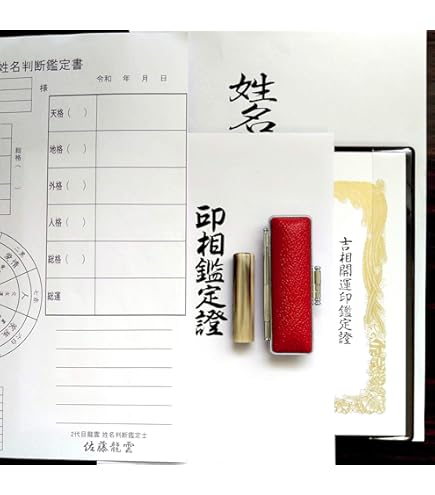 姓名判断鑑定書
令和 年 月 日
様
天格( )
地格( )
外格( )
人格( )
総格( )
総運
総格( )
愛情
人
2代目龍雲 姓名判断鑑定士
佐藤龍雲
姓名
印相鑑定證
吉相開運印鑑定證